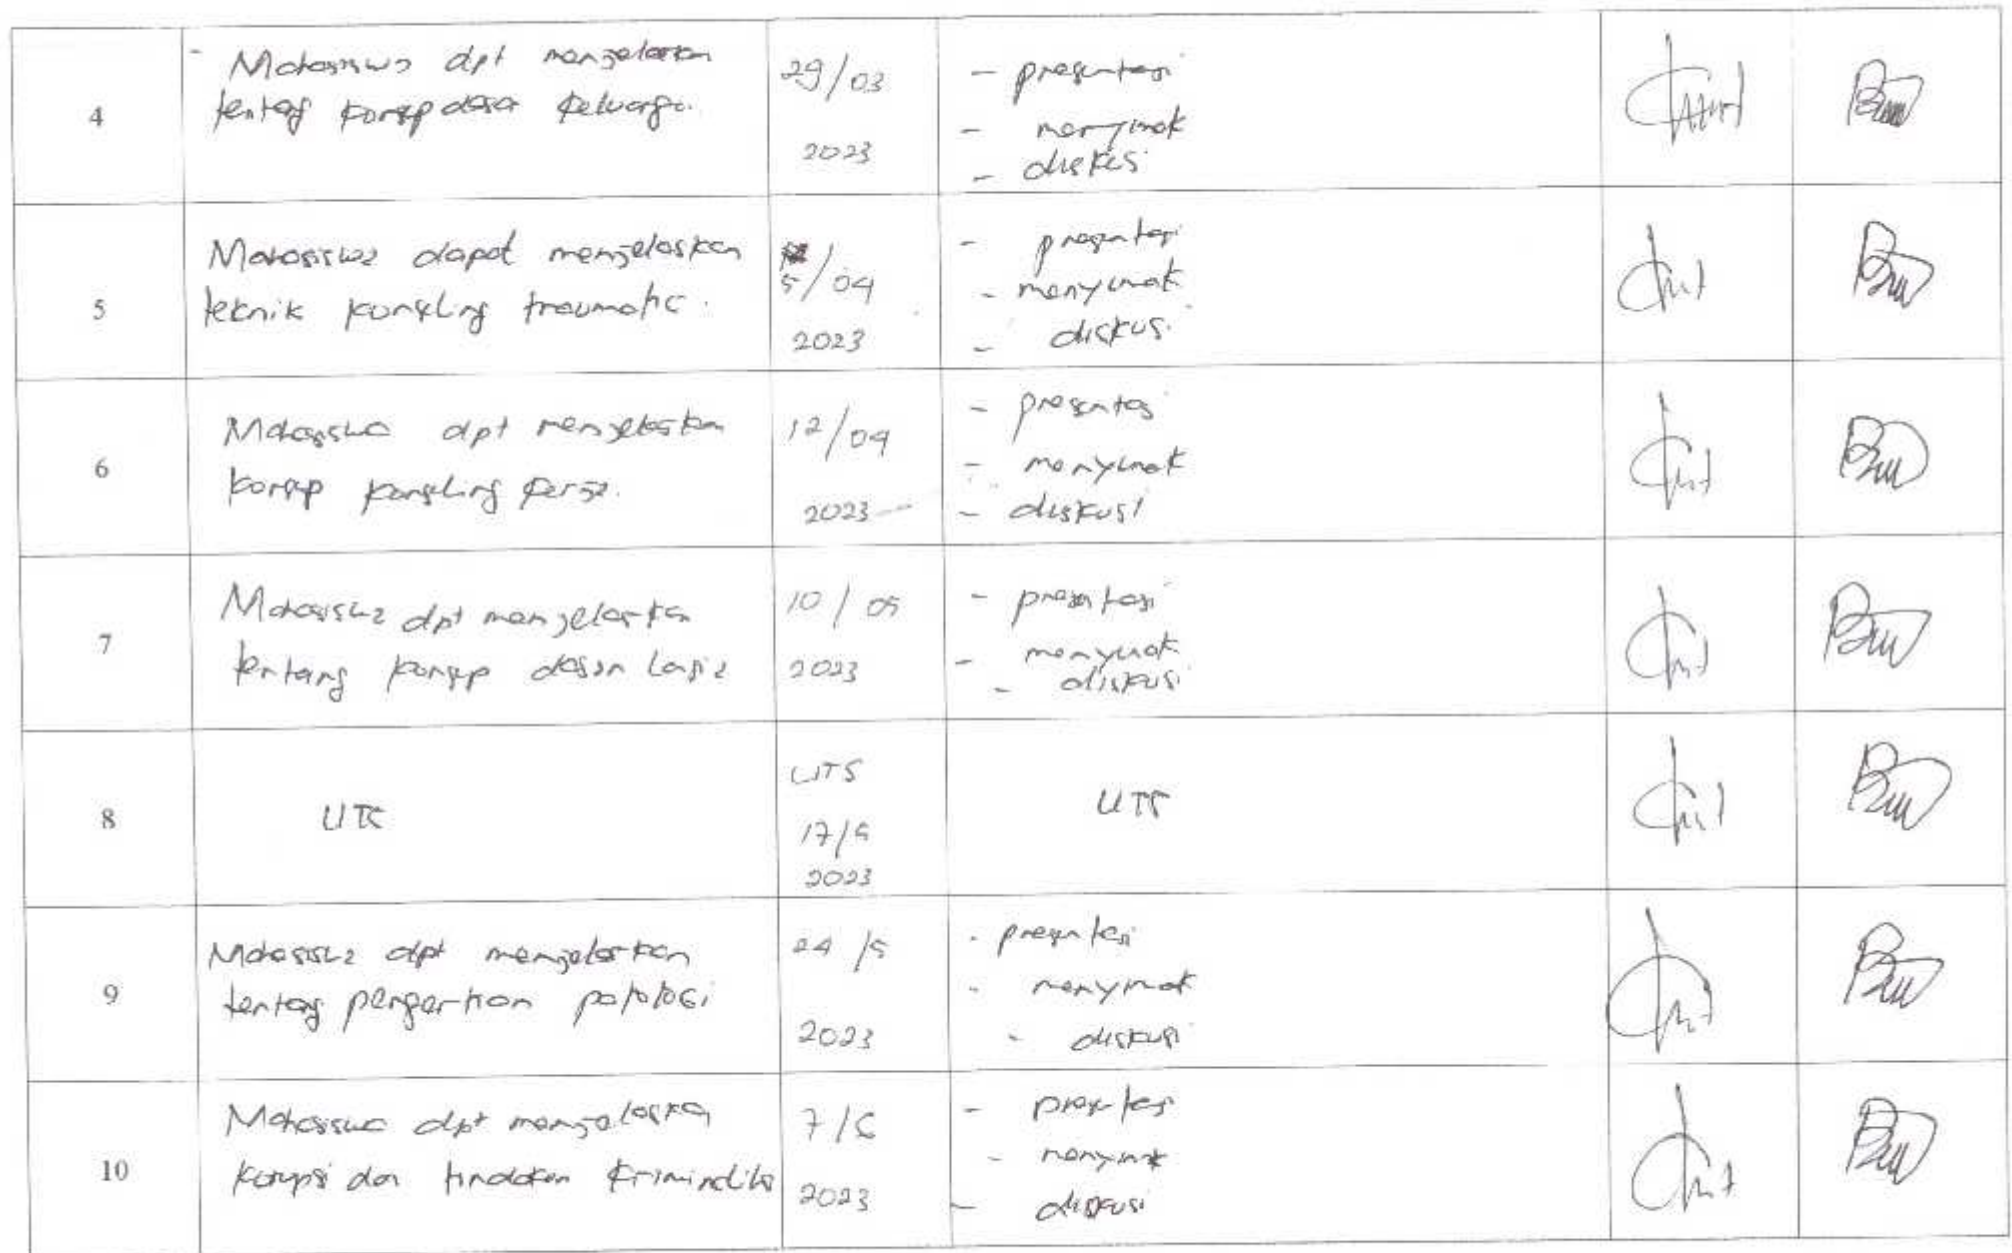 4
- Mahasiswa dpt menjelaskan
tentang konsep dasar keluarga.
29/03
2023
- presentasi
- menyimak
- diskusi
5
Mahasiswa dapat menjelaskan
teknik konseling traumatic.
5/04
2023
- presentasi
- menyimak
- diskusi
6
Mahasiswa dpt menjelaskan
konsep konseling kerja.
12/04
2023
- presentasi
- menyimak
- diskusi
7
Mahasiswa dpt menjelaskan
tentang konsep dasar lansia
10/05
2023
- presentasi
- menyimak
- diskusi
8
UTS
UTS
17/5
2023
UTS
9
Mahasiswa dpt menjelaskan
tentang pengertian patologi
24/5
2023
- presentasi
- menyimak
- diskusi
10
Mahasiswa dpt menjelaskan
korupsi dan tindakan kriminalitas
7/6
2023
- presentasi
- menyimak
- diskusi